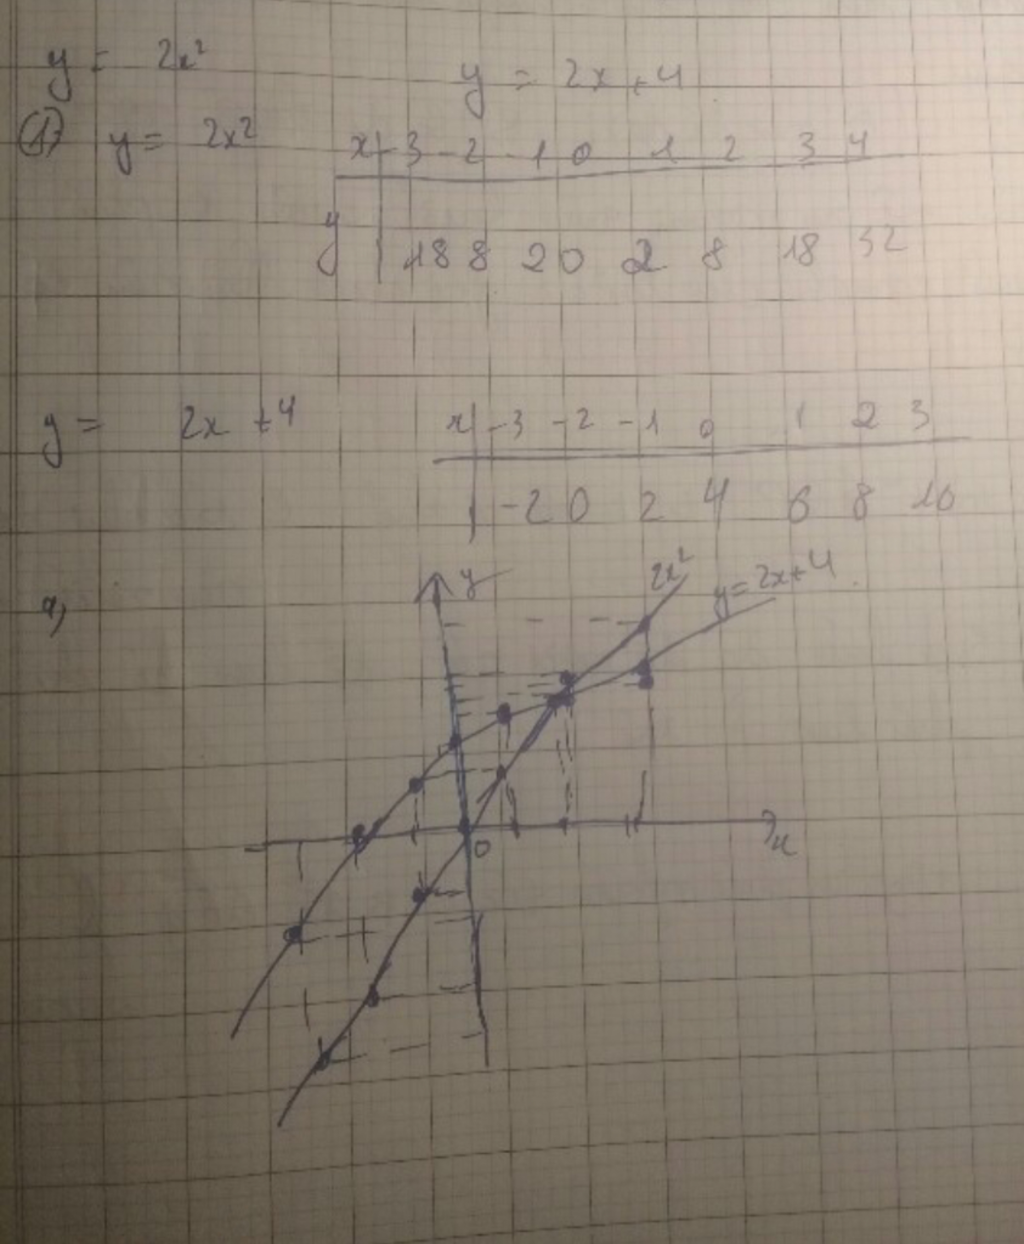 y = 2x²
y = 2x + 4
1) y = 2x²
x -3 -2 -1 0 1 2 3 4
y 18 8 2 0 2 8 18 32
y = 2x + 4
x -3 -2 -1 0 1 2 3
-2 0 2 4 6 8 10
y
2x²
y = 2x + 4
0
x